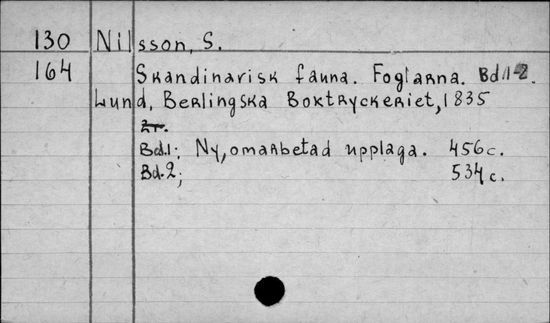 130 Nilsson, S.
164 Skandinavisk fauna. Foglarna. Bd. 1-2.
Lund, Berlingska Boktryckeriet, 1835
2т.
Bd.1; Ny, omarbetad upplaga. 456 c.
Bd.2; 534 c.